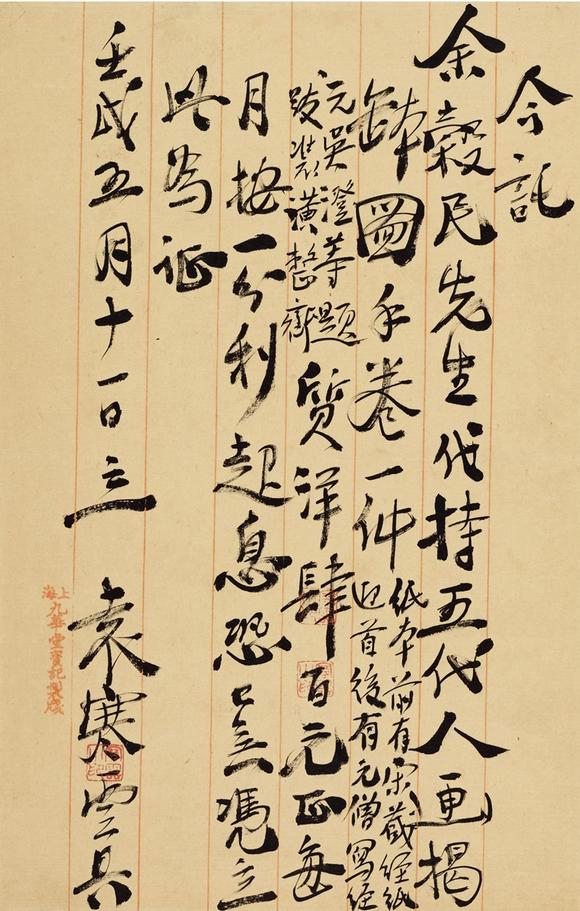 今託
余穀民先生代持五代人画揭
鉢圖手卷一件
紙本前有宋藏經紙
迎首後有元僧寫經
元吳澄等題
跋裝潢整齊
質洋肆百元正每
月按一分利起息恐口無憑立
此為証
壬戌五月十一日立 袁寒雲具
上海九華堂寶記製牋